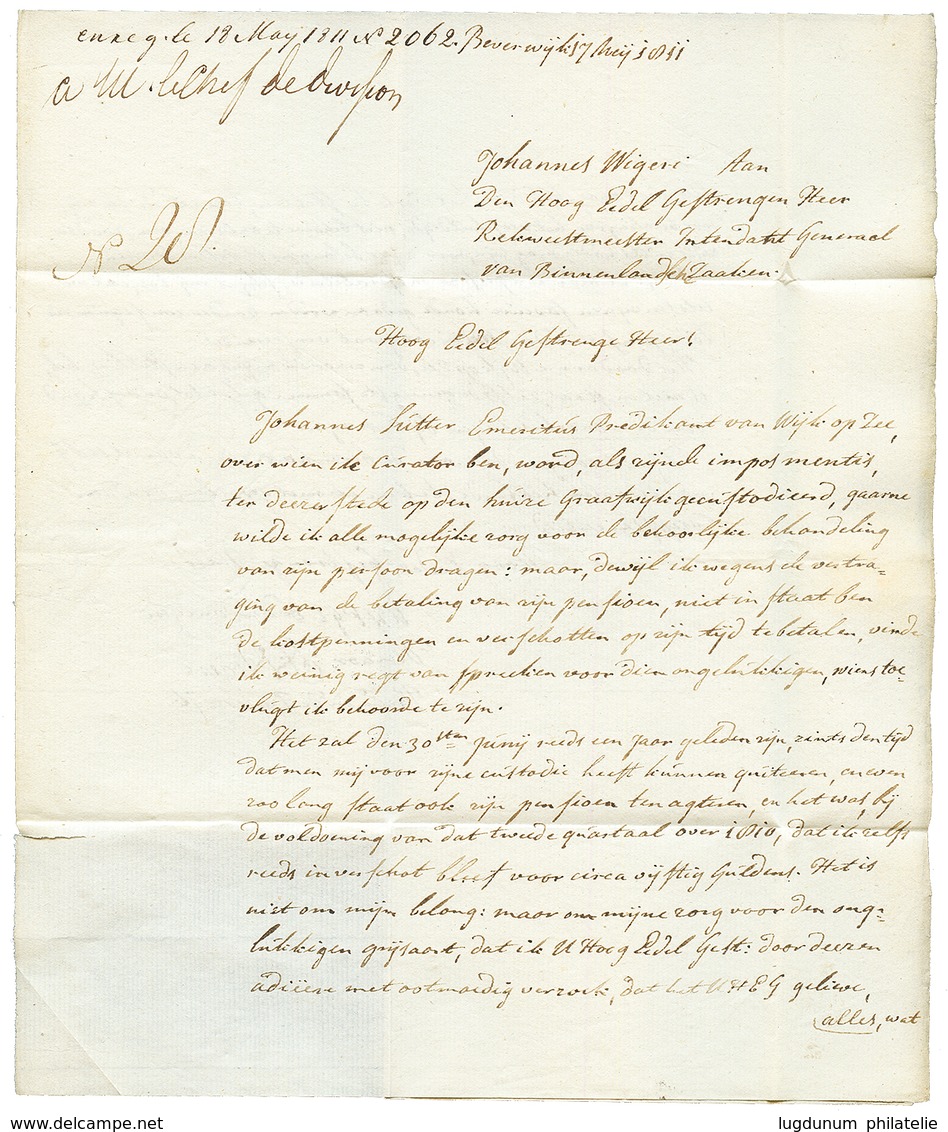 enreg. le 18 May 1811 N 2062. Beverwijk 17 Meij 1811
a M. le Chef de Division
Johannes Wigeri Aan
Den Hoog Edel Gestrengen Heer
Rekwestmeester Intendant Generael
van Binnenlandsche Zaaken.
N 28.
Hoog Edel Gestrenge Heer!
Johannes Sutter Emeritus Predikant van Wijk op Zee,
over wien ik Curator ben, word, als zijnde impos mentis,
ter deezer stede op den huize Graafwijk gecustodieerd, gaarne
wilde ik alle mogelijke zorg voor de behoorlijke behandeling
van zijn persoon dragen: maar, dewijl ik wegens de vertra-
ging van de betaling van zijn pensioen, niet in staat ben
de kostpenningen en verschotten op zijn tijd te betalen, vinde
ik weinig regt van spreeken voor dien ongelukkigen, wiens toe-
vlugt ik behoorde te zijn.
Het zal den 30sten Junij reeds een Jaar geleden zijn, zints den tijd
dat men mij voor zijne custodie heeft kunnen quiteeren, en even
zoo lang staat ook zijn pensioen ten agteren, en het was bij
de voldoening van dat tweede quartaal over 1810, dat ik zelfs
reeds in verschot bleef voor circa vijftig Guldens. Het is
niet om mijn belang: maar om mijne zorg voor den ong-
lukkigen grijsaart, dat ik U Hoog Edel Gest: door deezen
adiëere met ootmoedig verzoek, dat het U H E G gelieve,
alles, wat
www.delcampe.net
lugdunum philatelie